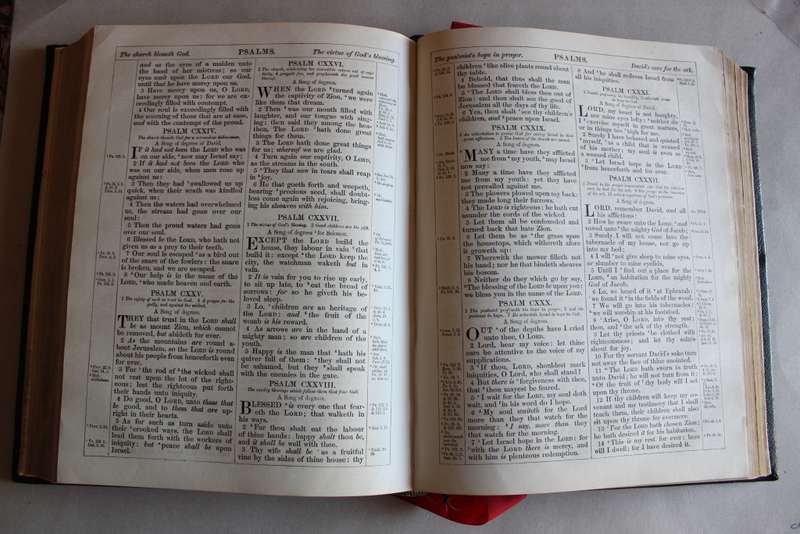 The church blesseth God.
PSALMS.
The virtue of God's blessing.
and as the eyes of a maiden unto
the hand of her mistress; so our
eyes wait upon the LORD our God,
until that he have mercy upon us.
3 Have mercy upon us, O LORD,
have mercy upon us: for we are ex-
ceedingly filled with contempt.
4 Our soul is exceedingly filled with
the scorning of those that are at ease,
and with the contempt of the proud.
PSALM CXXIV.
The church blesseth God for a miraculous deliverance.
A Song of degrees of David.
IF it had not been the LORD who was
on our side, now may Israel say;
2 If it had not been the LORD who
was on our side, when men rose up
against us:
3 Then they had swallowed us up
quick, when their wrath was kindled
against us:
4 Then the waters had overwhelmed
us, the stream had gone over our
soul:
5 Then the proud waters had gone
over our soul.
6 Blessed be the LORD, who hath not
given us as a prey to their teeth.
7 Our soul is escaped as a bird out
of the snare of the fowlers: the snare
is broken, and we are escaped.
8 Our help is in the name of the
LORD, who made heaven and earth.
PSALM CXXV.
1 The safety of such as trust in God. 4 A prayer for the
godly, and against the wicked.
A Song of degrees.
THEY that trust in the LORD shall
be as mount Zion, which cannot
be removed, but abideth for ever.
2 As the mountains are round a-
bout Jerusalem, so the LORD is round
about his people from henceforth even
for ever.
3 For the rod of the wicked shall
not rest upon the lot of the right-
eous; lest the righteous put forth
their hands unto iniquity.
4 Do good, O LORD, unto those that
be good, and to them that are up-
right in their hearts.
5 As for such as turn aside unto
their crooked ways, the LORD shall
lead them forth with the workers of
iniquity: but peace shall be upon
Israel.
PSALM CXXVI.
A Song of degrees.
WHEN the LORD turned again
the captivity of Zion, we were
like them that dream.
2 Then was our mouth filled with
laughter, and our tongue with sing-
ing: then said they among the hea-
then, The LORD hath done great
things for them.
3 The LORD hath done great things
for us; whereof we are glad.
4 Turn again our captivity, O LORD,
as the streams in the south.
5 They that sow in tears shall reap
in joy.
6 He that goeth forth and weepeth,
bearing precious seed, shall doubt-
less come again with rejoicing, bring-
ing his sheaves with him.
PSALM CXXVII.
1 The virtue of God's blessing. 3 Good children are his gift.
A Song of degrees for Solomon.
EXCEPT the LORD build the
house, they labour in vain that
build it: except the LORD keep the
city, the watchman waketh but in
vain.
2 It is vain for you to rise up early,
to sit up late, to eat the bread of
sorrows: for so he giveth his be-
loved sleep.
3 Lo, children are an heritage of
the LORD: and the fruit of the
womb is his reward.
4 As arrows are in the hand of a
mighty man; so are children of the
youth.
5 Happy is the man that hath his
quiver full of them: they shall not
be ashamed, but they shall speak
with the enemies in the gate.
PSALM CXXVIII.
The sundry blessings which follow them that fear God.
A Song of degrees.
BLESSED is every one that fear-
eth the LORD; that walketh in
his ways.
2 For thou shalt eat the labour
of thine hands: happy shalt thou be,
and it shall be well with thee.
3 Thy wife shall be as a fruitful
vine by the sides of thine house: thy
The penitent's hope in prayer.
PSALMS.
David's care for the ark.
children like olive plants round about
thy table.
4 Behold, that thus shall the man
be blessed that feareth the LORD.
5 The LORD shall bless thee out of
Zion: and thou shalt see the good of
Jerusalem all the days of thy life.
6 Yea, thou shalt see thy children's
children, and peace upon Israel.
PSALM CXXIX.
A Song of degrees.
MANY a time have they afflicted
me from my youth, may Israel
now say:
2 Many a time have they afflicted
me from my youth: yet they have
not prevailed against me.
3 The plowers plowed upon my back:
they made long their furrows.
4 The LORD is righteous: he hath cut
asunder the cords of the wicked.
5 Let them all be confounded and
turned back that hate Zion.
6 Let them be as the grass upon
the housetops, which withereth afore
it groweth up:
7 Wherewith the mower filleth not
his hand; nor he that bindeth sheaves
his bosom.
8 Neither do they which go by say,
The blessing of the LORD be upon you:
we bless you in the name of the LORD.
PSALM CXXX.
A Song of degrees.
OUT of the depths have I cried
unto thee, O LORD.
2 Lord, hear my voice: let thine
ears be attentive to the voice of my
supplications.
3 If thou, LORD, shouldest mark
iniquities, O Lord, who shall stand?
4 But there is forgiveness with thee,
that thou mayest be feared.
5 I wait for the LORD, my soul doth
wait, and in his word do I hope.
6 My soul waiteth for the Lord
more than they that watch for the
morning: I say, more than they
that watch for the morning.
7 Let Israel hope in the LORD: for
with the LORD there is mercy, and
with him is plenteous redemption.
8 And he shall redeem Israel from
all his iniquities.
PSALM CXXXI.
A Song of degrees of David.
LORD, my heart is not haughty,
nor mine eyes lofty: neither do I
exercise myself in great matters,
or in things too high for me.
2 Surely I have behaved and quieted
myself, as a child that is weaned
of his mother: my soul is even as
a weaned child.
3 Let Israel hope in the LORD
from henceforth and for ever.
PSALM CXXXII.
A Song of degrees.
LORD, remember David, and all
his afflictions:
2 How he sware unto the LORD, and
vowed unto the mighty God of Jacob;
3 Surely I will not come into the
tabernacle of my house, nor go up
into my bed;
4 I will not give sleep to mine eyes,
or slumber to mine eyelids,
5 Until I find out a place for the
LORD, an habitation for the mighty
God of Jacob.
6 Lo, we heard of it at Ephratah:
we found it in the fields of the wood.
7 We will go into his tabernacles:
we will worship at his footstool.
8 Arise, O LORD, into thy rest;
thou, and the ark of thy strength.
9 Let thy priests be clothed with
righteousness; and let thy saints
shout for joy.
10 For thy servant David's sake turn
not away the face of thine anointed.
11 The LORD hath sworn in truth
unto David; he will not turn from it;
Of the fruit of thy body will I set
upon thy throne.
12 If thy children will keep my co-
venant and my testimony that I shall
teach them, their children shall also
sit upon thy throne for evermore.
13 For the LORD hath chosen Zion;
he hath desired it for his habitation.
14 This is my rest for ever: here
will I dwell; for I have desired it.